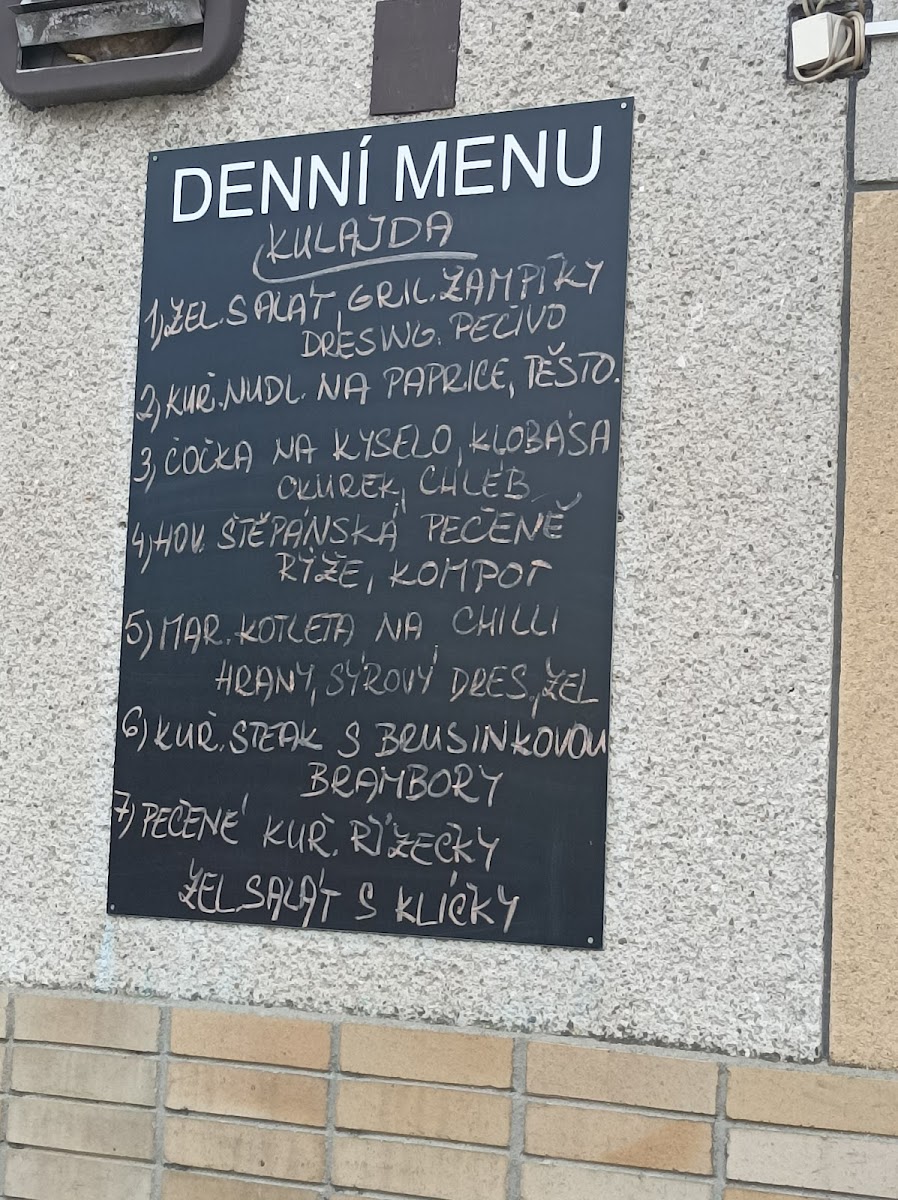 DENNÍ MENU
KULAJDA
1) ZEL. SALÁT, GRIL. ŽAMPIKY
DRESING. PEČIVO
2) KUŘ. NUDL. NA PAPRICE, TĚSTO.
3) ČOČKA NA KYSELO, KLOBÁSA
OKUREK, CHLÉB
4) HOV. ŠTĚPÁNSKÁ PEČENĚ
RÝŽE, KOMPOT
5) MAR. KOTLETA NA CHILLI
HRANY, SÝROVÝ DRES., ZEL
6) KUŘ. STEAK S BRUSINKOVOU
BRAMBORY
7) PEČENÉ KUŘ. ŘÍZEČKY
ZEL. SALÁT S KLÍČKY